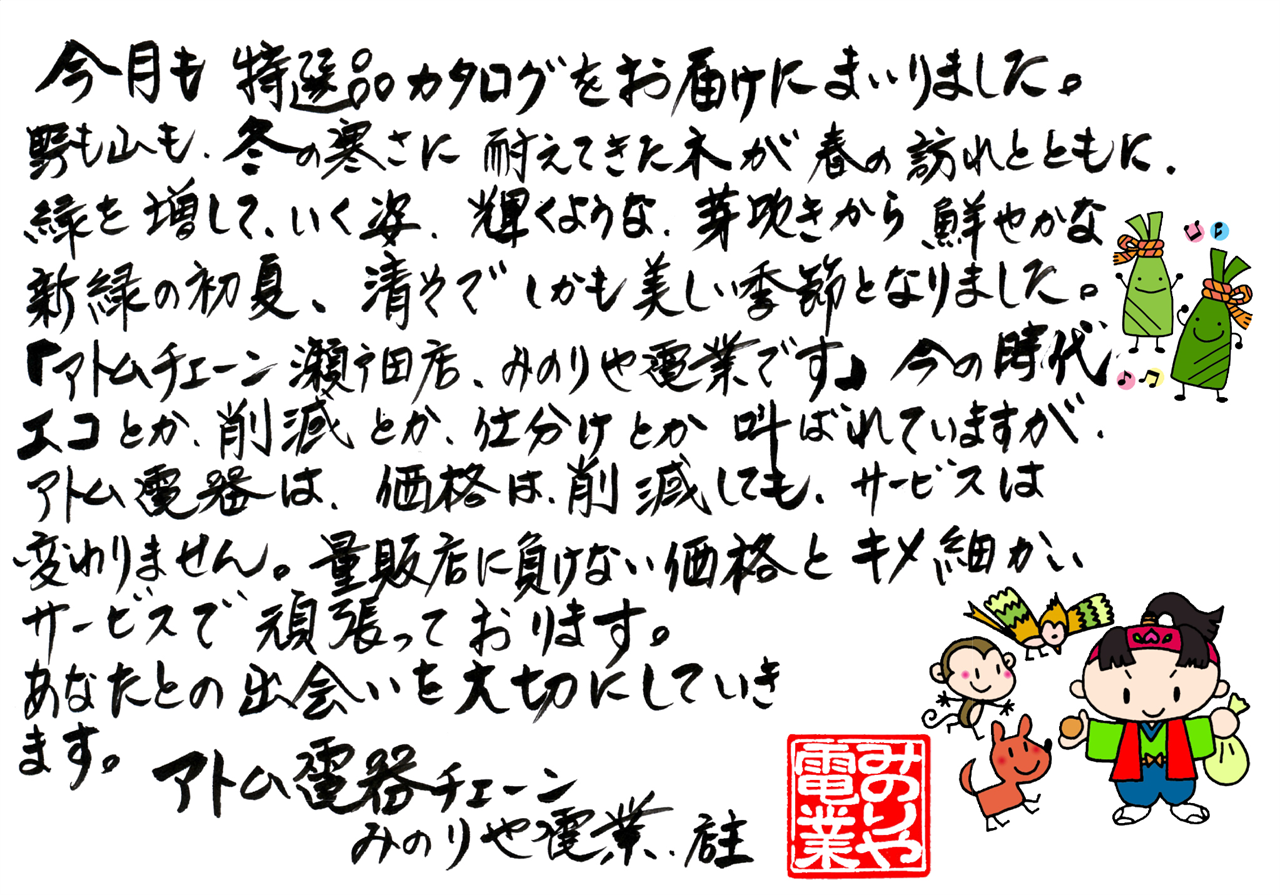 今月も特選品カタログをお届けにまいりました。
野も山も、冬の寒さに耐えてきた木が春の訪れとともに、
緑を増して、いく姿、輝くような、芽吹きから鮮やかな
新緑の初夏、清そでしかも美しい季節となりました。
「アトムチェーン瀬戸田店、みのりや電業です」今の時代
エコとか、削減とか、仕分けとか叫ばれていますが、
アトム電器は、価格は、削減しても、サービスは
変わりません。量販店に負けない価格とキメ細かい
サービスで頑張っております。
あなたとの出会いを大切にしていき
ます。
アトム電器チェーン
みのりや電業、店主
みのりや
電業